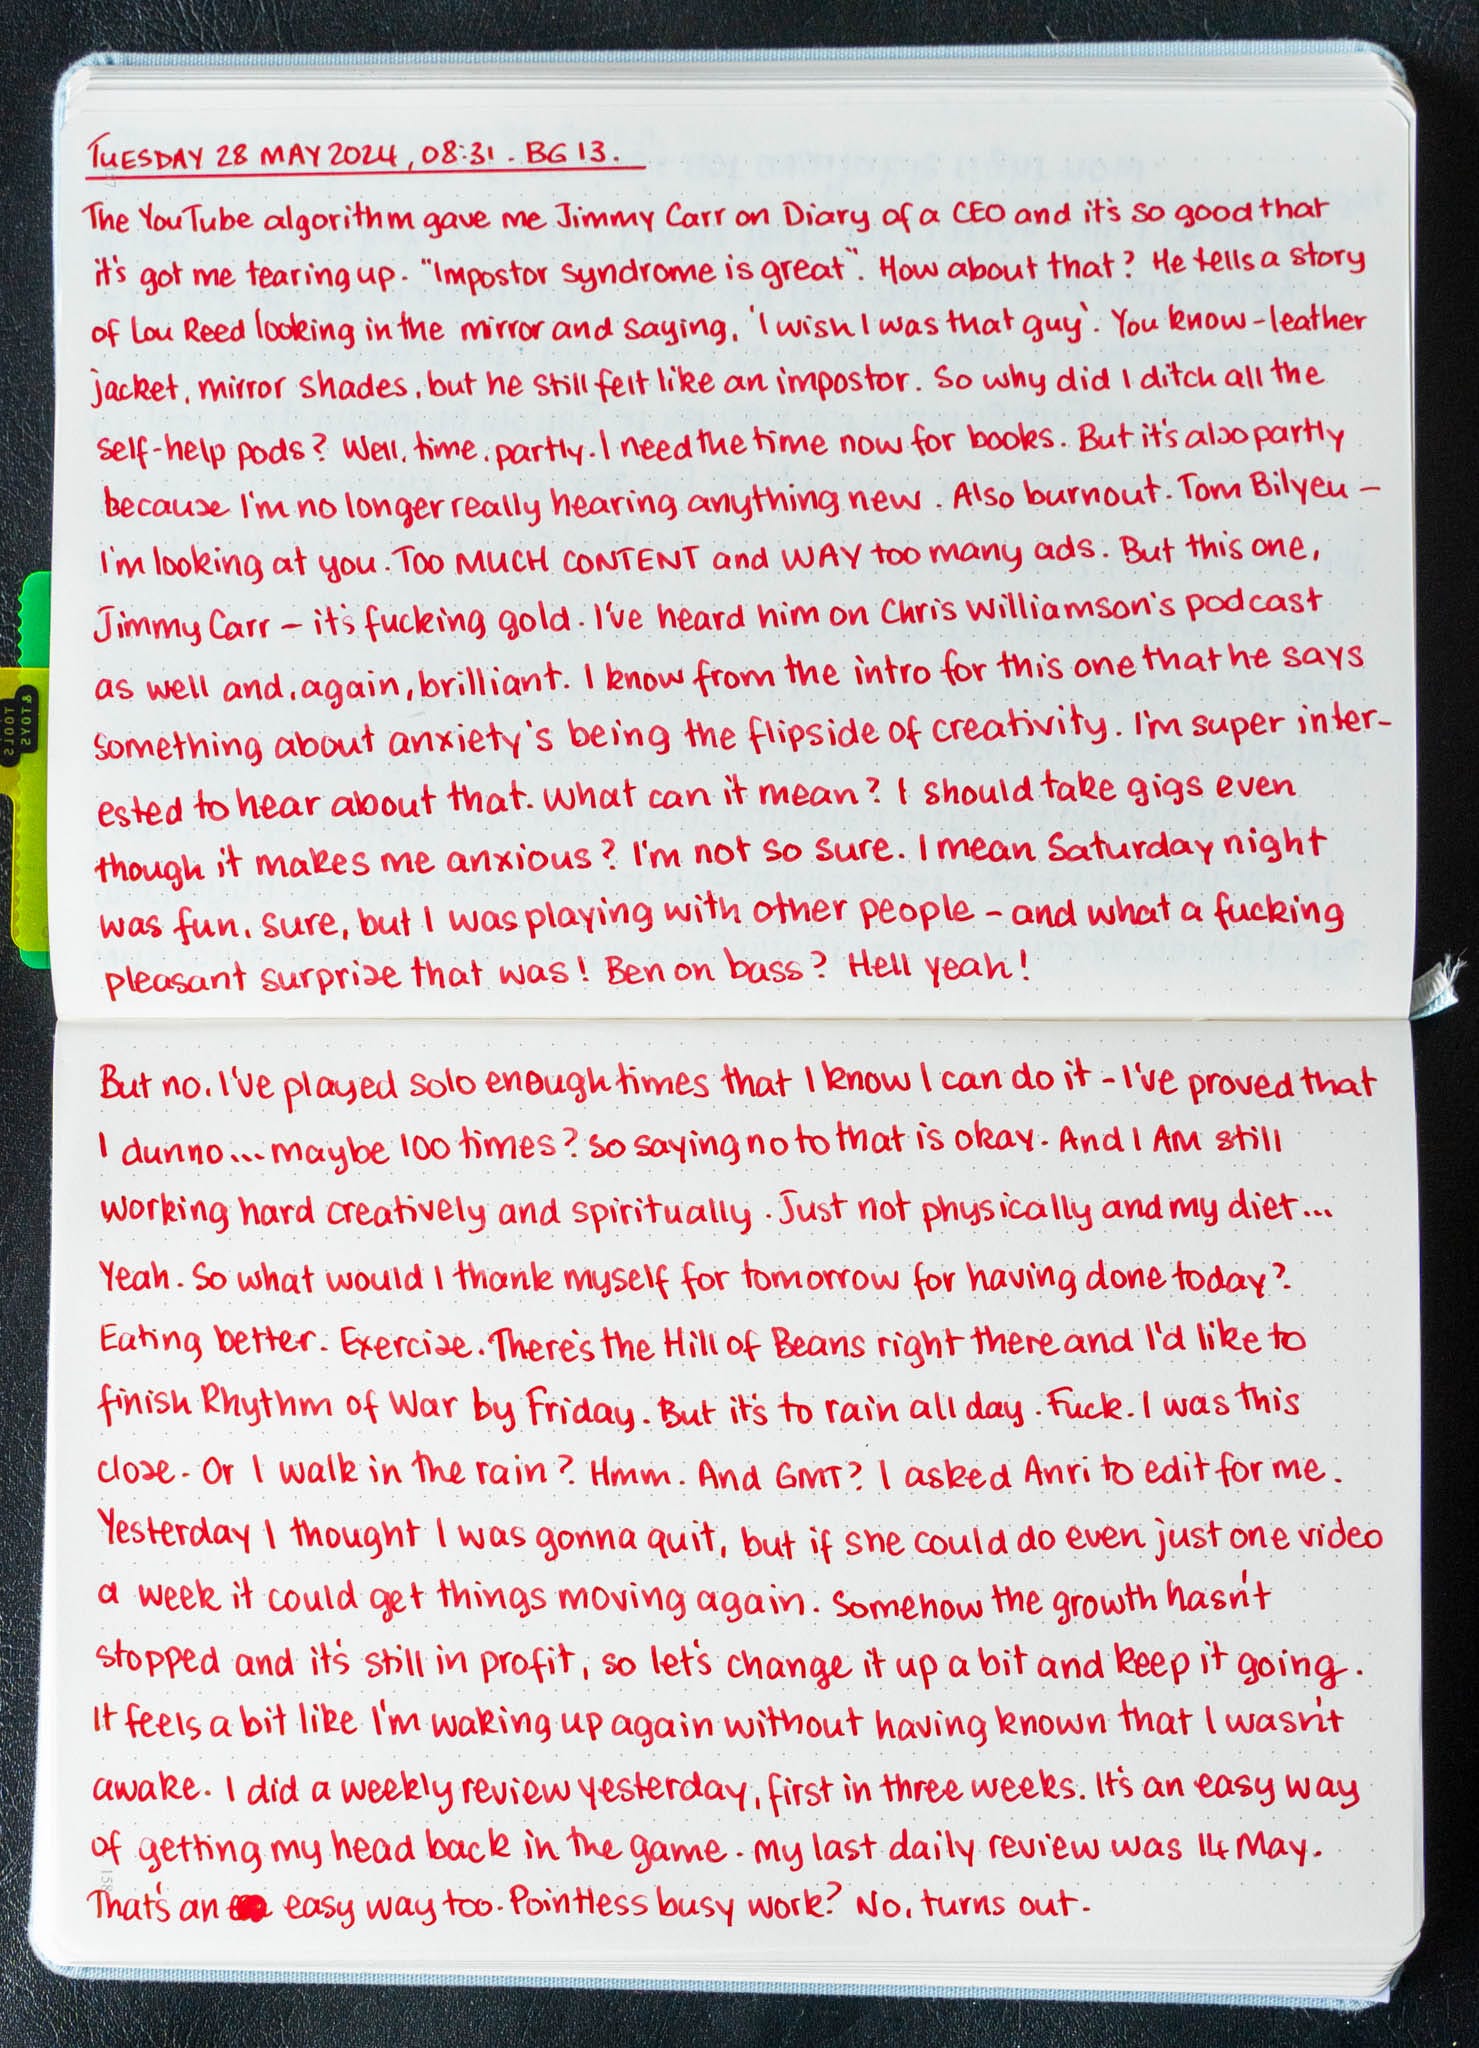 TUESDAY 28 MAY 2024, 08:31. BG 13.
The YouTube algorithm gave me Jimmy Carr on Diary of a CEO and it's so good that
it's got me tearing up. "Impostor syndrome is great". How about that? He tells a story
of Lou Reed looking in the mirror and saying, 'I wish I was that guy'. You know – leather
jacket, mirror shades, but he still felt like an impostor. So why did I ditch all the
self-help pods? Well, time, partly. I need the time now for books. But it's also partly
because I'm no longer really hearing anything new. Also burnout. Tom Bilyeu –
I'm looking at you. TOO MUCH CONTENT and WAY too many ads. But this one,
Jimmy Carr – it's fucking gold. I've heard him on Chris Williamson's podcast
as well and, again, brilliant. I know from the intro for this one that he says
something about anxiety's being the flipside of creativity. I'm super inter-
ested to hear about that. What can it mean? I should take gigs even
though it makes me anxious? I'm not so sure. I mean Saturday night
was fun, sure, but I was playing with other people – and what a fucking
pleasant surprise that was! Ben on bass? Hell yeah!
But no. I've played solo enough times that I know I can do it – I've proved that
I dunno... maybe 100 times? So saying no to that is okay. And I AM still
working hard creatively and spiritually. Just not physically and my diet...
Yeah. So what would I thank myself for tomorrow for having done today?
Eating better. Exercise. There's the Hill of Beans right there and I'd like to
finish Rhythm of War by Friday. But it's to rain all day. Fuck. I was this
close. Or I walk in the rain? Hmm. And GMT? I asked Anri to edit for me.
Yesterday I thought I was gonna quit, but if she could do even just one video
a week it could get things moving again. Somehow the growth hasn't
stopped and it's still in profit, so let's change it up a bit and keep it going.
It feels a bit like I'm waking up again without having known that I wasn't
awake. I did a weekly review yesterday, first in three weeks. It's an easy way
of getting my head back in the game. My last daily review was 14 May.
That's an easy way too. Pointless busy work? No, turns out.
158
TOOLS
& TOYS